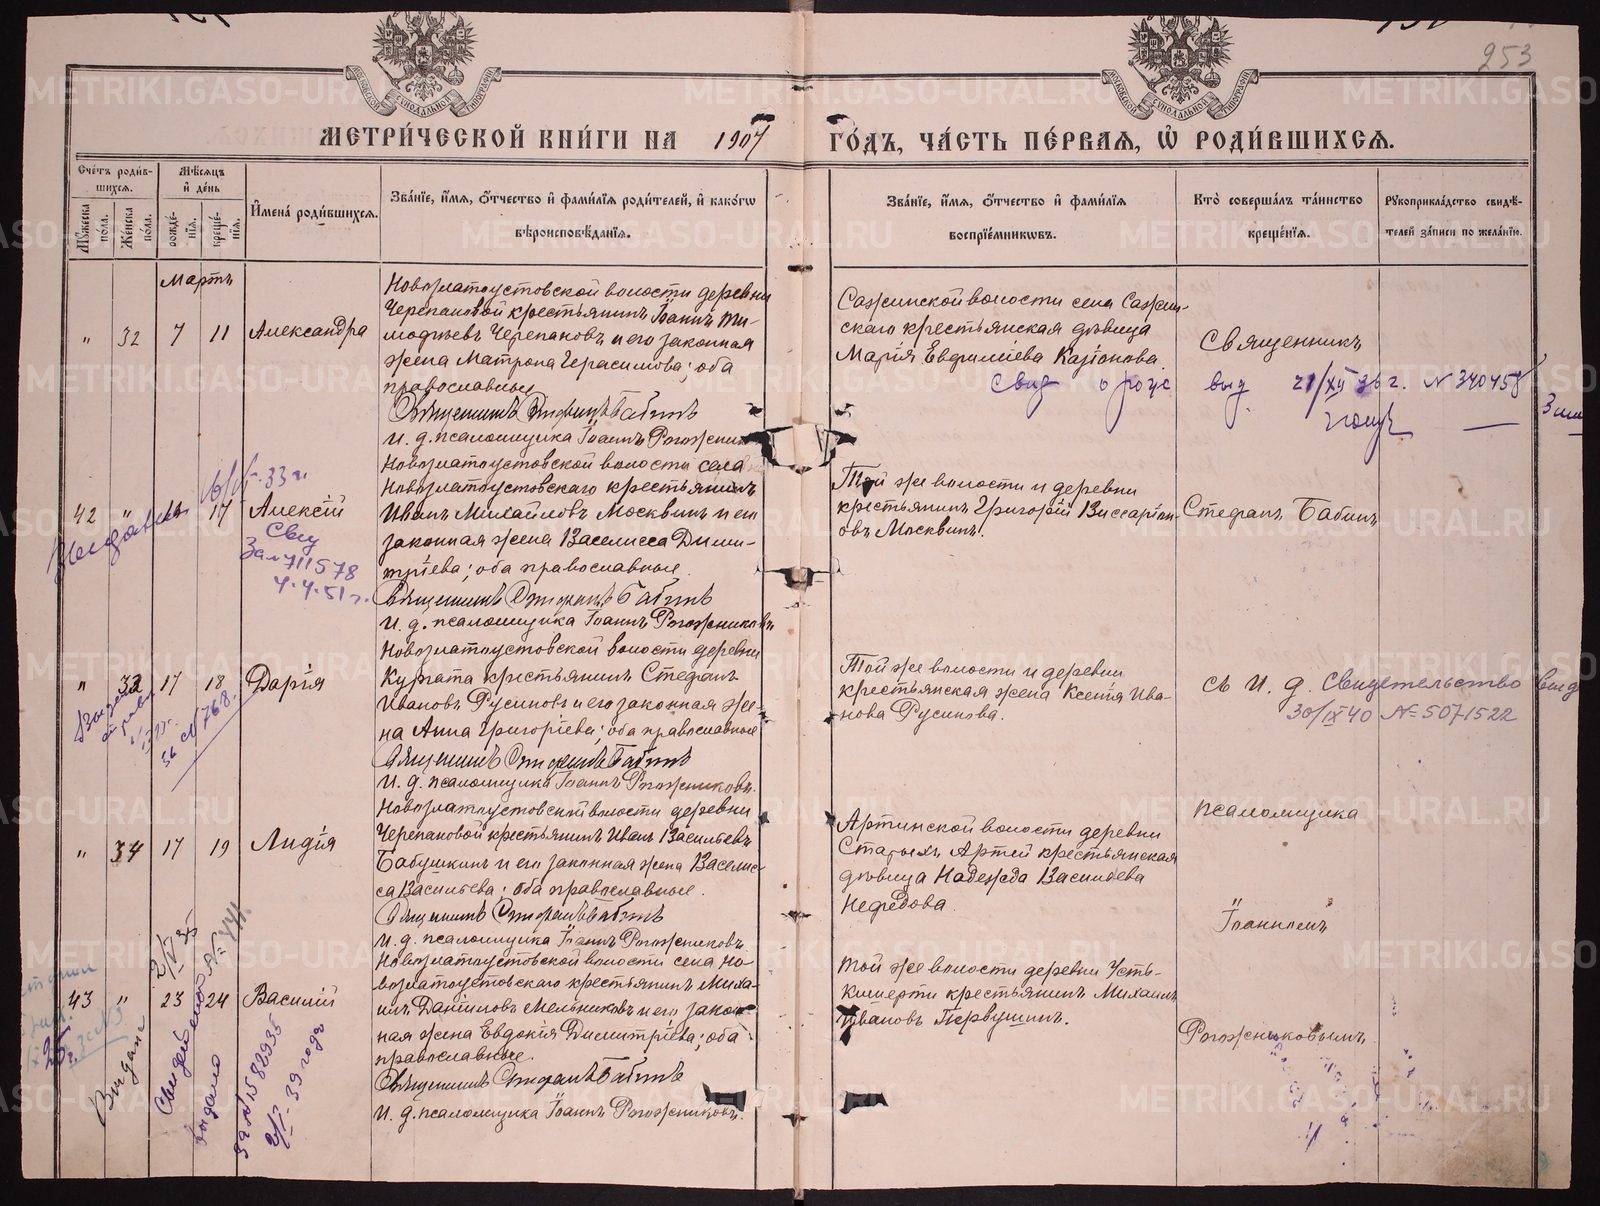 253
МЕТРИ́ЧЕСКОЙ КНИ́ГИ НА 1907 ГО́ДЪ, ЧА́СТЬ ПЕ́РВАЯ, Ѡ҆ РОДИ́ВШИХСЯ.
Сче́тъ роди́в-
шихся.
Мѣ́сяцъ
и҆ де́нь
Му́жеска по́ла.
Же́нска по́ла.
рожде́-
нїя.
креще́-
нїя.
И҆мена̀ роди́вшихся.
Зва́нїе, и҆́мя, ѻ҆́тчество и҆ фами́лїя роди́телей, и҆ како́гѡ
вѣроисповѣ́данїя.
Зва́нїе, и҆́мя, ѻ҆́тчество и҆ фами́лїя
воспрїе́мниковъ.
Кто̀ соверша́лъ та́инство
креще́нїя.
Рукоприкла́дство свидѣ́-
телей за́писи по жела́нїю.
Мартъ
" 32 7 11 Александра
Новозлатоустовской волости деревни
Черепановой крестьянинъ Іоаннъ Ти-
моѳеевъ Черепановъ и его законная
жена Матрона Герасимова; оба
православные
Священникъ Стефанъ Бабинъ
И. д. псаломщика Іоаннъ Рогожник
Сажинской волости села Сажин-
скаго крестьянская дѣвица
Марія Евѳиміева Казіонова.
Священникъ
Свид о рожд выд 21/XII 36 г. № 340458
42 " 17 Алексій
16/IV-33 г
Свид
За № 711578
4.4.51 г.
Новозлатоустовской волости села
Новозлатоустовскаго крестьянинъ
Иванъ Михайловъ Москвинъ и его
законная жена Василисса Дими-
тріева; оба православные.
Священникъ Стефанъ Бабинъ
И. д. псаломщика Іоаннъ Рогожниковъ
Той же волости и деревни
крестьянинъ Григорій Виссаріон-
овъ Москвинъ.
Стефанъ Бабинъ
" 33 17 18 Дарія
Новозлатоустовской волости деревни
Кургата крестьянинъ Стефанъ
Ивановъ Русиновъ и его законная же-
на Анна Григоріева; оба православные
Священникъ Стефанъ Бабинъ
И. д. псаломщика Іоаннъ Рогожниковъ.
Той же волости и деревни
крестьянская жена Ксенія Ива-
нова Русинова.
съ И. д. Свидетельство выд
30/IX 40 №=5071522
" 34 17 19 Лидія
Новозлатоустовской волости деревни
Черепановой крестьянинъ Иванъ Васильевъ
Бабушкинъ и его законная жена Василис-
са Васильева; оба православные.
Священникъ Стефанъ Бабинъ
И. д. псаломщика Іоаннъ Рогожниковъ
Артинской волости деревни
Старыхъ Артей крестьянская
дѣвица Надежда Васильева
Нефедова.
псаломщика
Іоанномъ
43 " 23 24 Василій
Выдан
выдано
за № 1582935
2/I-39 года
Новозлатоустовской волости села Но-
возлатоустовскаго крестьянинъ Миха-
илъ Даниловъ Мельниковъ и его закон-
ная жена Евдокія Димитріева; оба
православные.
Священникъ Стефанъ Бабинъ
И. д. псаломщика Іоаннъ Рогожниковъ.
Той же волости деревни Усть-
Кишерти крестьянинъ Михаилъ
Ивановъ Первушинъ.
Рогожниковымъ.
METRIKI.GASO-URAL.RU